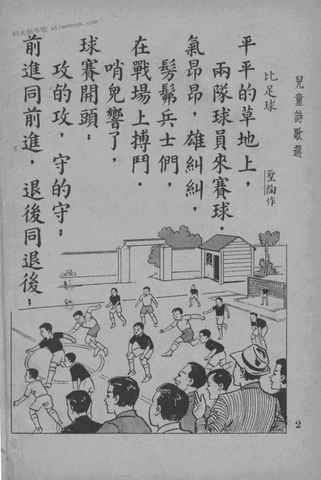 兒童詩歌選
比足球
聖陶作
平平的草地上，
兩隊球員來賽球．
氣昂昂，雄糾糾，
髣髴兵士們，
在戰場上搏鬥．
哨兒響了，
球賽開頭；
攻的攻，守的守；
前進同前進，退後同退後；
2